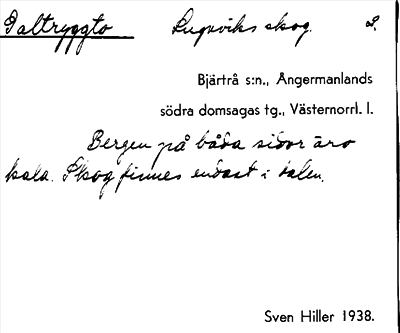 Daltryggto Lugnviks skog. 2.
Bjärtrå s:n., Ångermanlands
södra domsagas tg., Västernorrl. l.
Bergen på båda sidor äro
kala. Skog finnes endast i dalen.
Sven Hiller 1938.